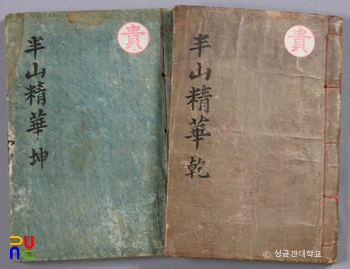 貴
半山精華 坤
貴
半山精華 乾
ⓒ 성균관대학교